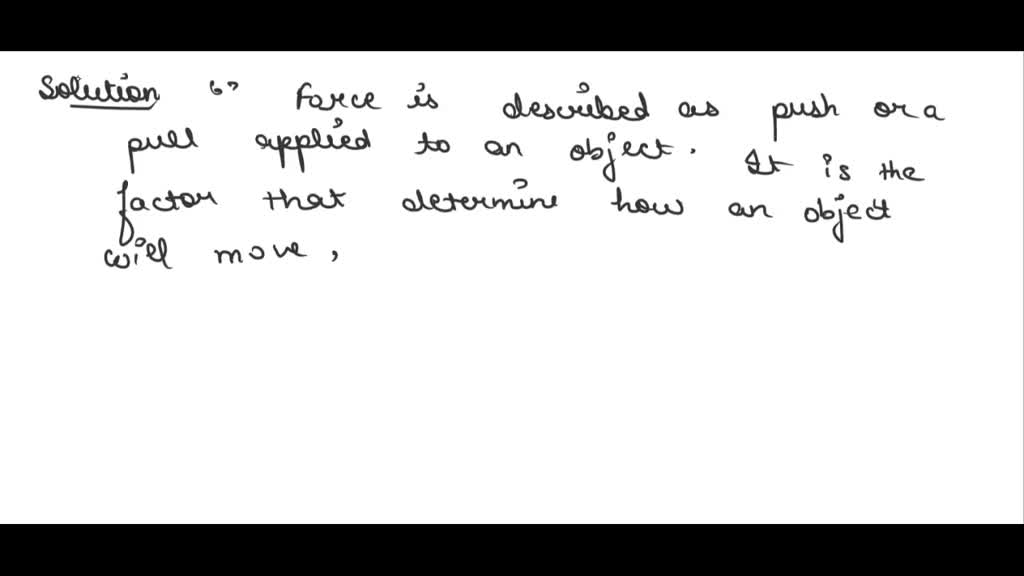 Solution 6> force is described as push or a
pull applied to an object. It is the
factor that determine how an object
will move,